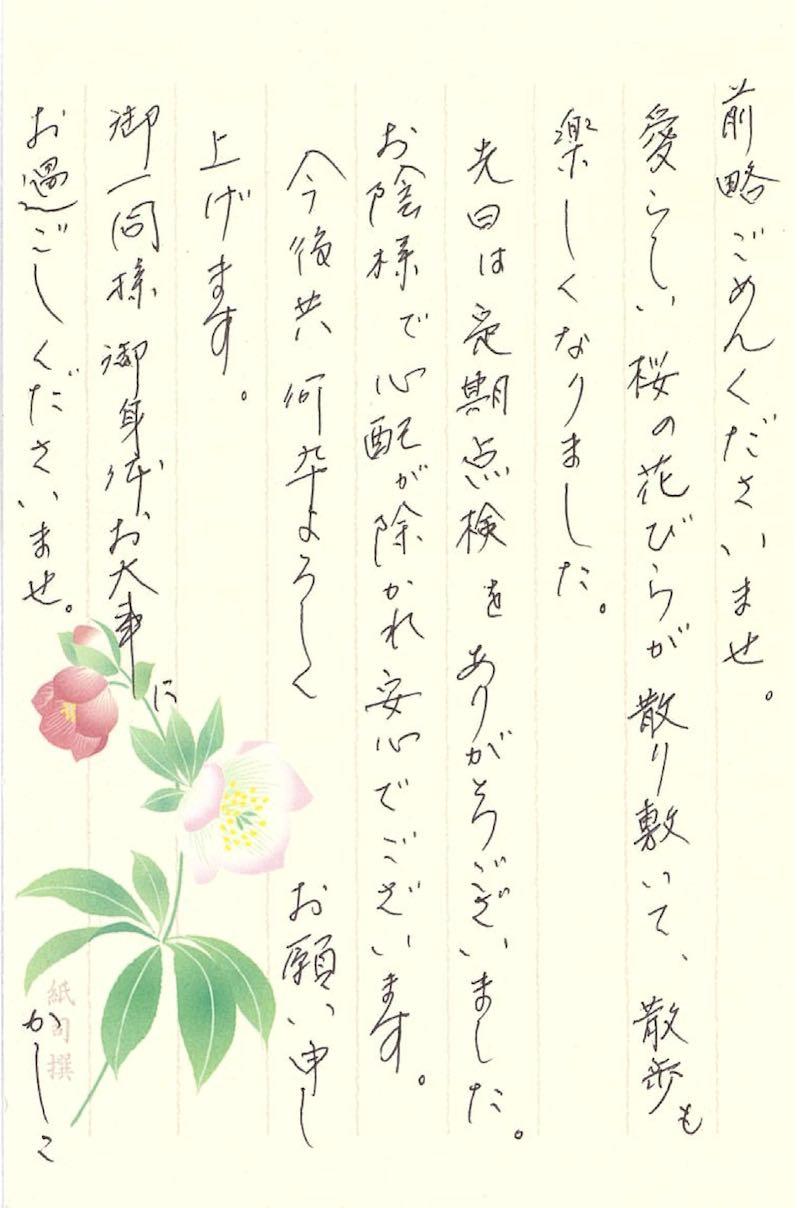 前略ごめんくださいませ。
愛らしい桜の花びらが散り敷いて、散歩も
楽しくなりました。
先日は定期点検をありがとうございました。
お陰様で心配が除かれ安心でございます。
今後共何卒よろしくお願い申し
上げます。
御一同様御身体お大事に
お過ごしくださいませ。かしこ
紙司撰